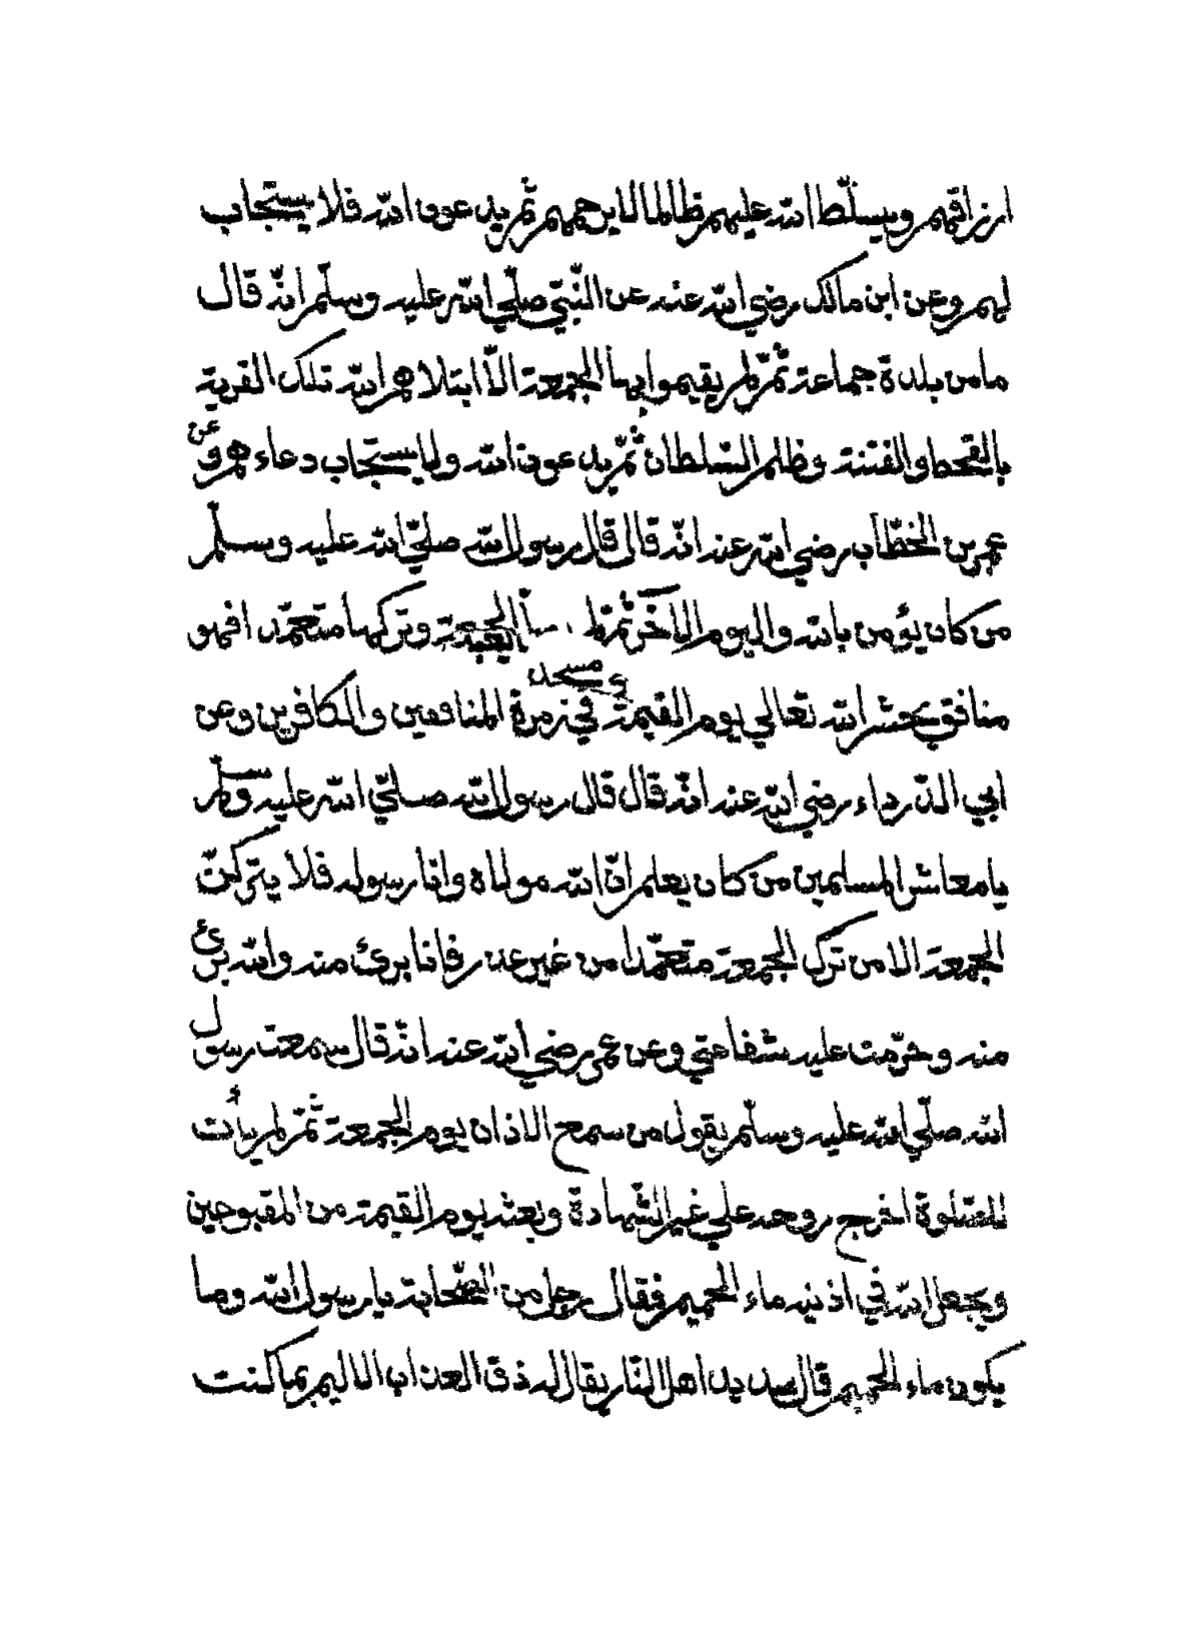 ارزاقهم ويسلّط الله عليهم ظالما لا يرحمهم ثم يدعون الله فلا يستجاب
لهم وعن ابن مالك رضي الله عنه عن النّبيّ صلّي الله عليه وسلّم انّه قال
مامن بلدة جماعة ثمّ لم يقيموا بها الجمعة الّا ابتلاهم الله تلك القرية
بالقحط والفتنة وظلم السّلطان ثمّ يدعون الله ولا يستجاب دعاءهم وعن
عمر بن الخطّاب رضي الله عنه انّه قال قال رسول الله صلّي الله عليه وسلّم
من كان يؤمن بالله واليوم الآخر ثمّ الجمعة وتركها متعمّدا فهو
منافق يحشر الله تعالي يوم القيمة في زمرة المنافقين والكافرين وعن
ابي الدّرداء رضي الله عنه انّه قال قال رسول الله صلّي الله عليه وسلّم
يا معاشر المسلمين من كان يعلم انّ الله مولاه وانا رسوله فلا يتركنّ
الجمعة الا من ترك الجمعة متعمّدا من غير عذر فانا برئ منه والله برئ
منه وحرّمت عليه شفاعتي وعن عمر رضي الله عنه انّه قال سمعت رسول
الله صلّي الله عليه وسلّم يقول من سمع الاذان يوم الجمعة ثمّ لم يأت
للصّلوة اخرج روحه علي غير الشّهادة وبعثه يوم القيمة من المقبوحين
ويجعل الله في اذنيه ماء الحميم فقال رجل من الصّحابة يا رسول الله وما
يكون ماء الحميم قال صديد اهل النّار يقال له ذق العذاب الاليم بما كنت